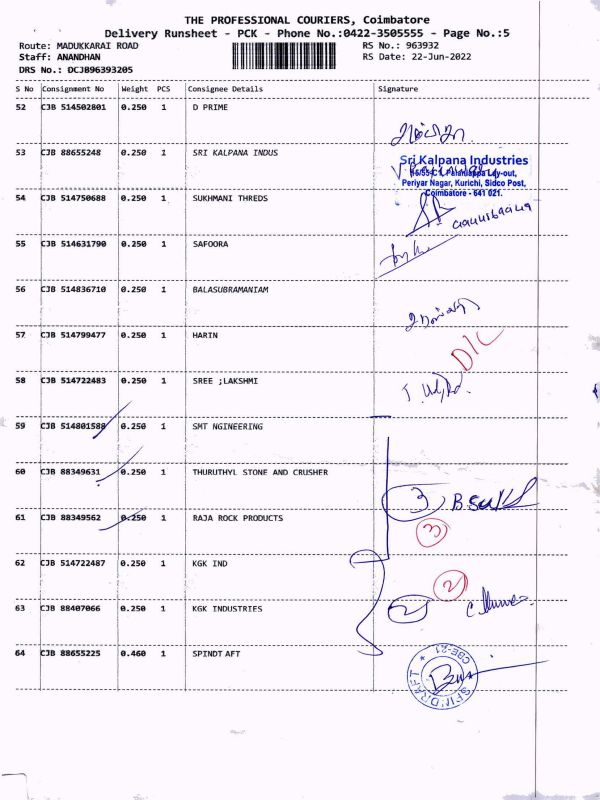 THE PROFESSIONAL COURIERS, Coimbatore
Delivery Runsheet - PCK - Phone No.:0422-3505555 - Page No.:5
Route: MADUKKARAI ROAD RS No.: 963932
Staff: ANANDHAN RS Date: 22-Jun-2022
DRS No.: DCJB96393205
S No Consignment No Weight PCS Consignee Details Signature
52 CJB 514502801 0.250 1 D PRIME
53 CJB 88655248 0.250 1 SRI KALPANA INDUS
Sri Kalpana Industries
Periyar Nagar, Kurichi, Sidco Post,
Coimbatore - 641 021.
54 CJB 514750688 0.250 1 SUKHMANI THREDS
55 CJB 514631790 0.250 1 SAFOORA
56 CJB 514836710 0.250 1 BALASUBRAMANIAM
57 CJB 514799477 0.250 1 HARIN
D/L
58 CJB 514722483 0.250 1 SREE ;LAKSHMI
59 CJB 514801588 0.250 1 SMT NGINEERING
60 CJB 88349631 0.250 1 THURUTHYL STONE AND CRUSHER
3
61 CJB 88349562 0.250 1 RAJA ROCK PRODUCTS
3
62 CJB 514722487 0.250 1 KGK IND
2
63 CJB 88407066 0.250 1 KGK INDUSTRIES
2
64 CJB 88655225 0.460 1 SPINDT AFT
CBE-21